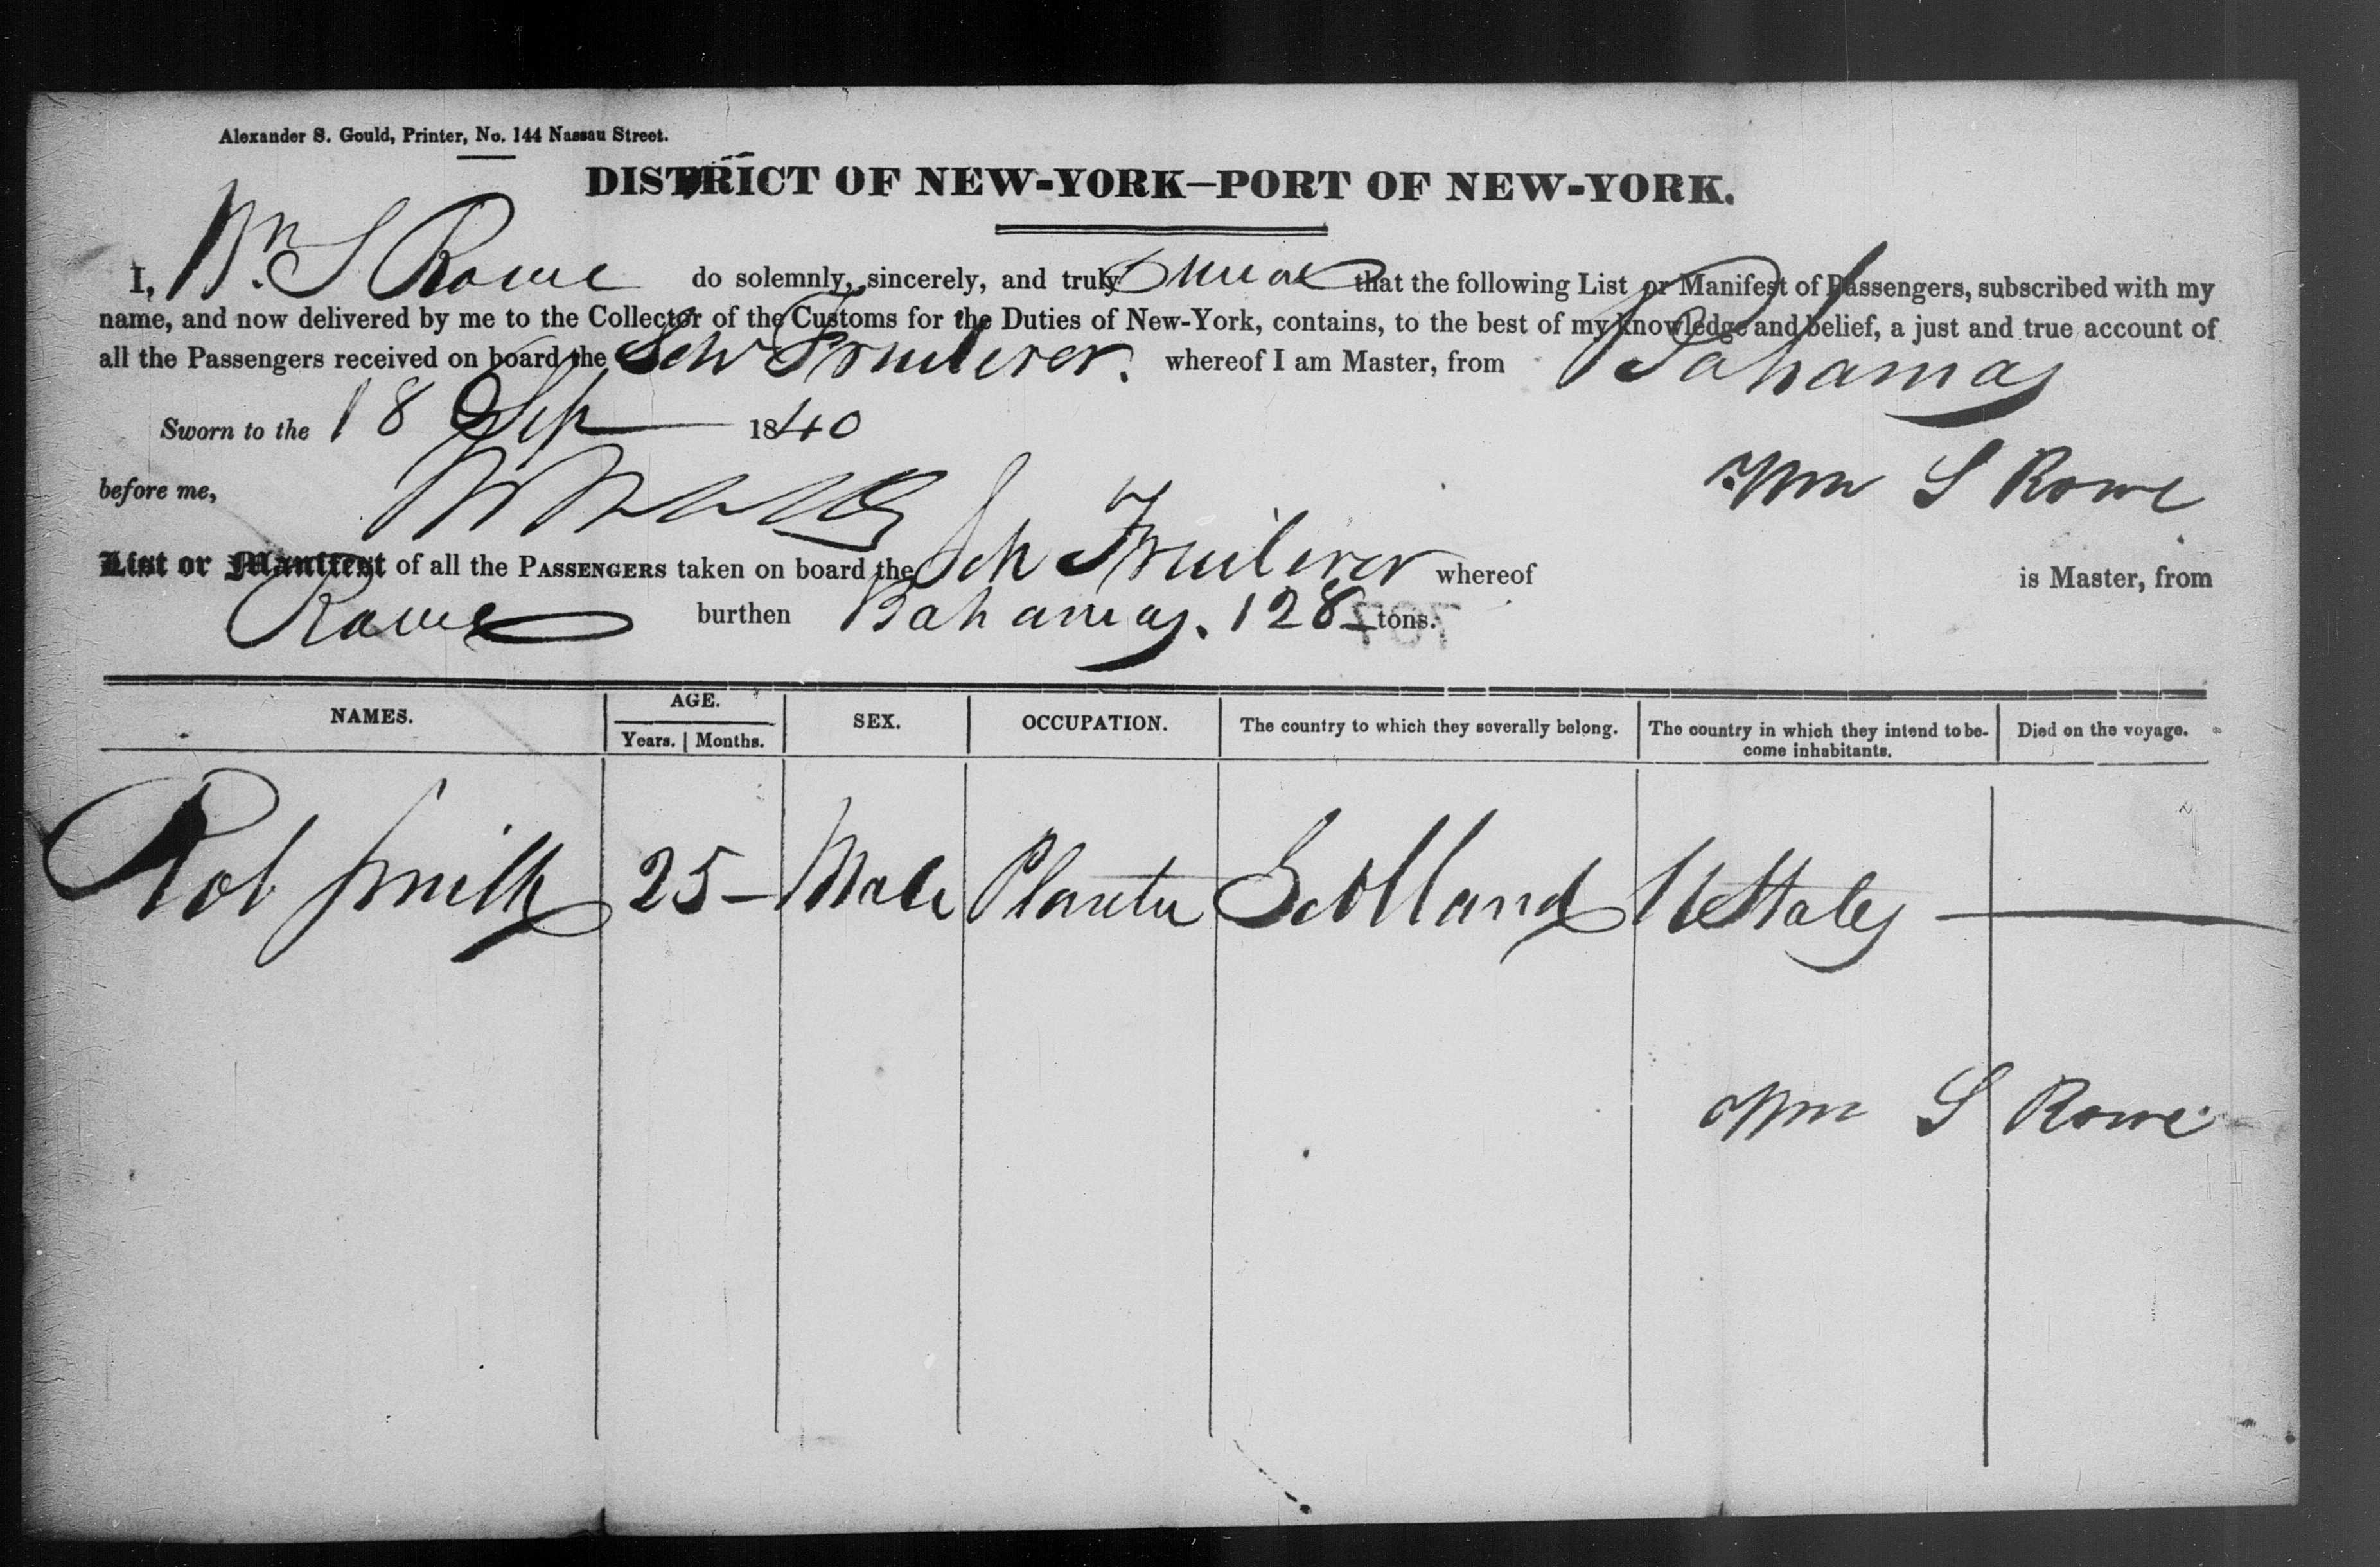 Alexander S. Gould, Printer, No. 144 Nassau Street.
DISTRICT OF NEW-YORK—PORT OF NEW-YORK.
I, Wm. S Rowe do solemnly, sincerely, and truly swear that the following List or Manifest of Passengers, subscribed with my
name, and now delivered by me to the Collector of the Customs for the Duties of New-York, contains, to the best of my knowledge and belief, a just and true account of
all the Passengers received on board the Sch Fruiterer. whereof I am Master, from Bahamas
Sworn to the 18 Sep 1840
before me,
Wm S Rowe
List or Manifest of all the PASSENGERS taken on board the Sch Fruiterer whereof is Master, from
Rowe burthen Bahamas. 128 tons.
707
NAMES. AGE. SEX. OCCUPATION. The country to which they severally belong. The country in which they intend to be- Died on the voyage.
Years. Months. come inhabitants.
Rob Smith 25 – Male Planter Scotland U States —
Wm S Rowe